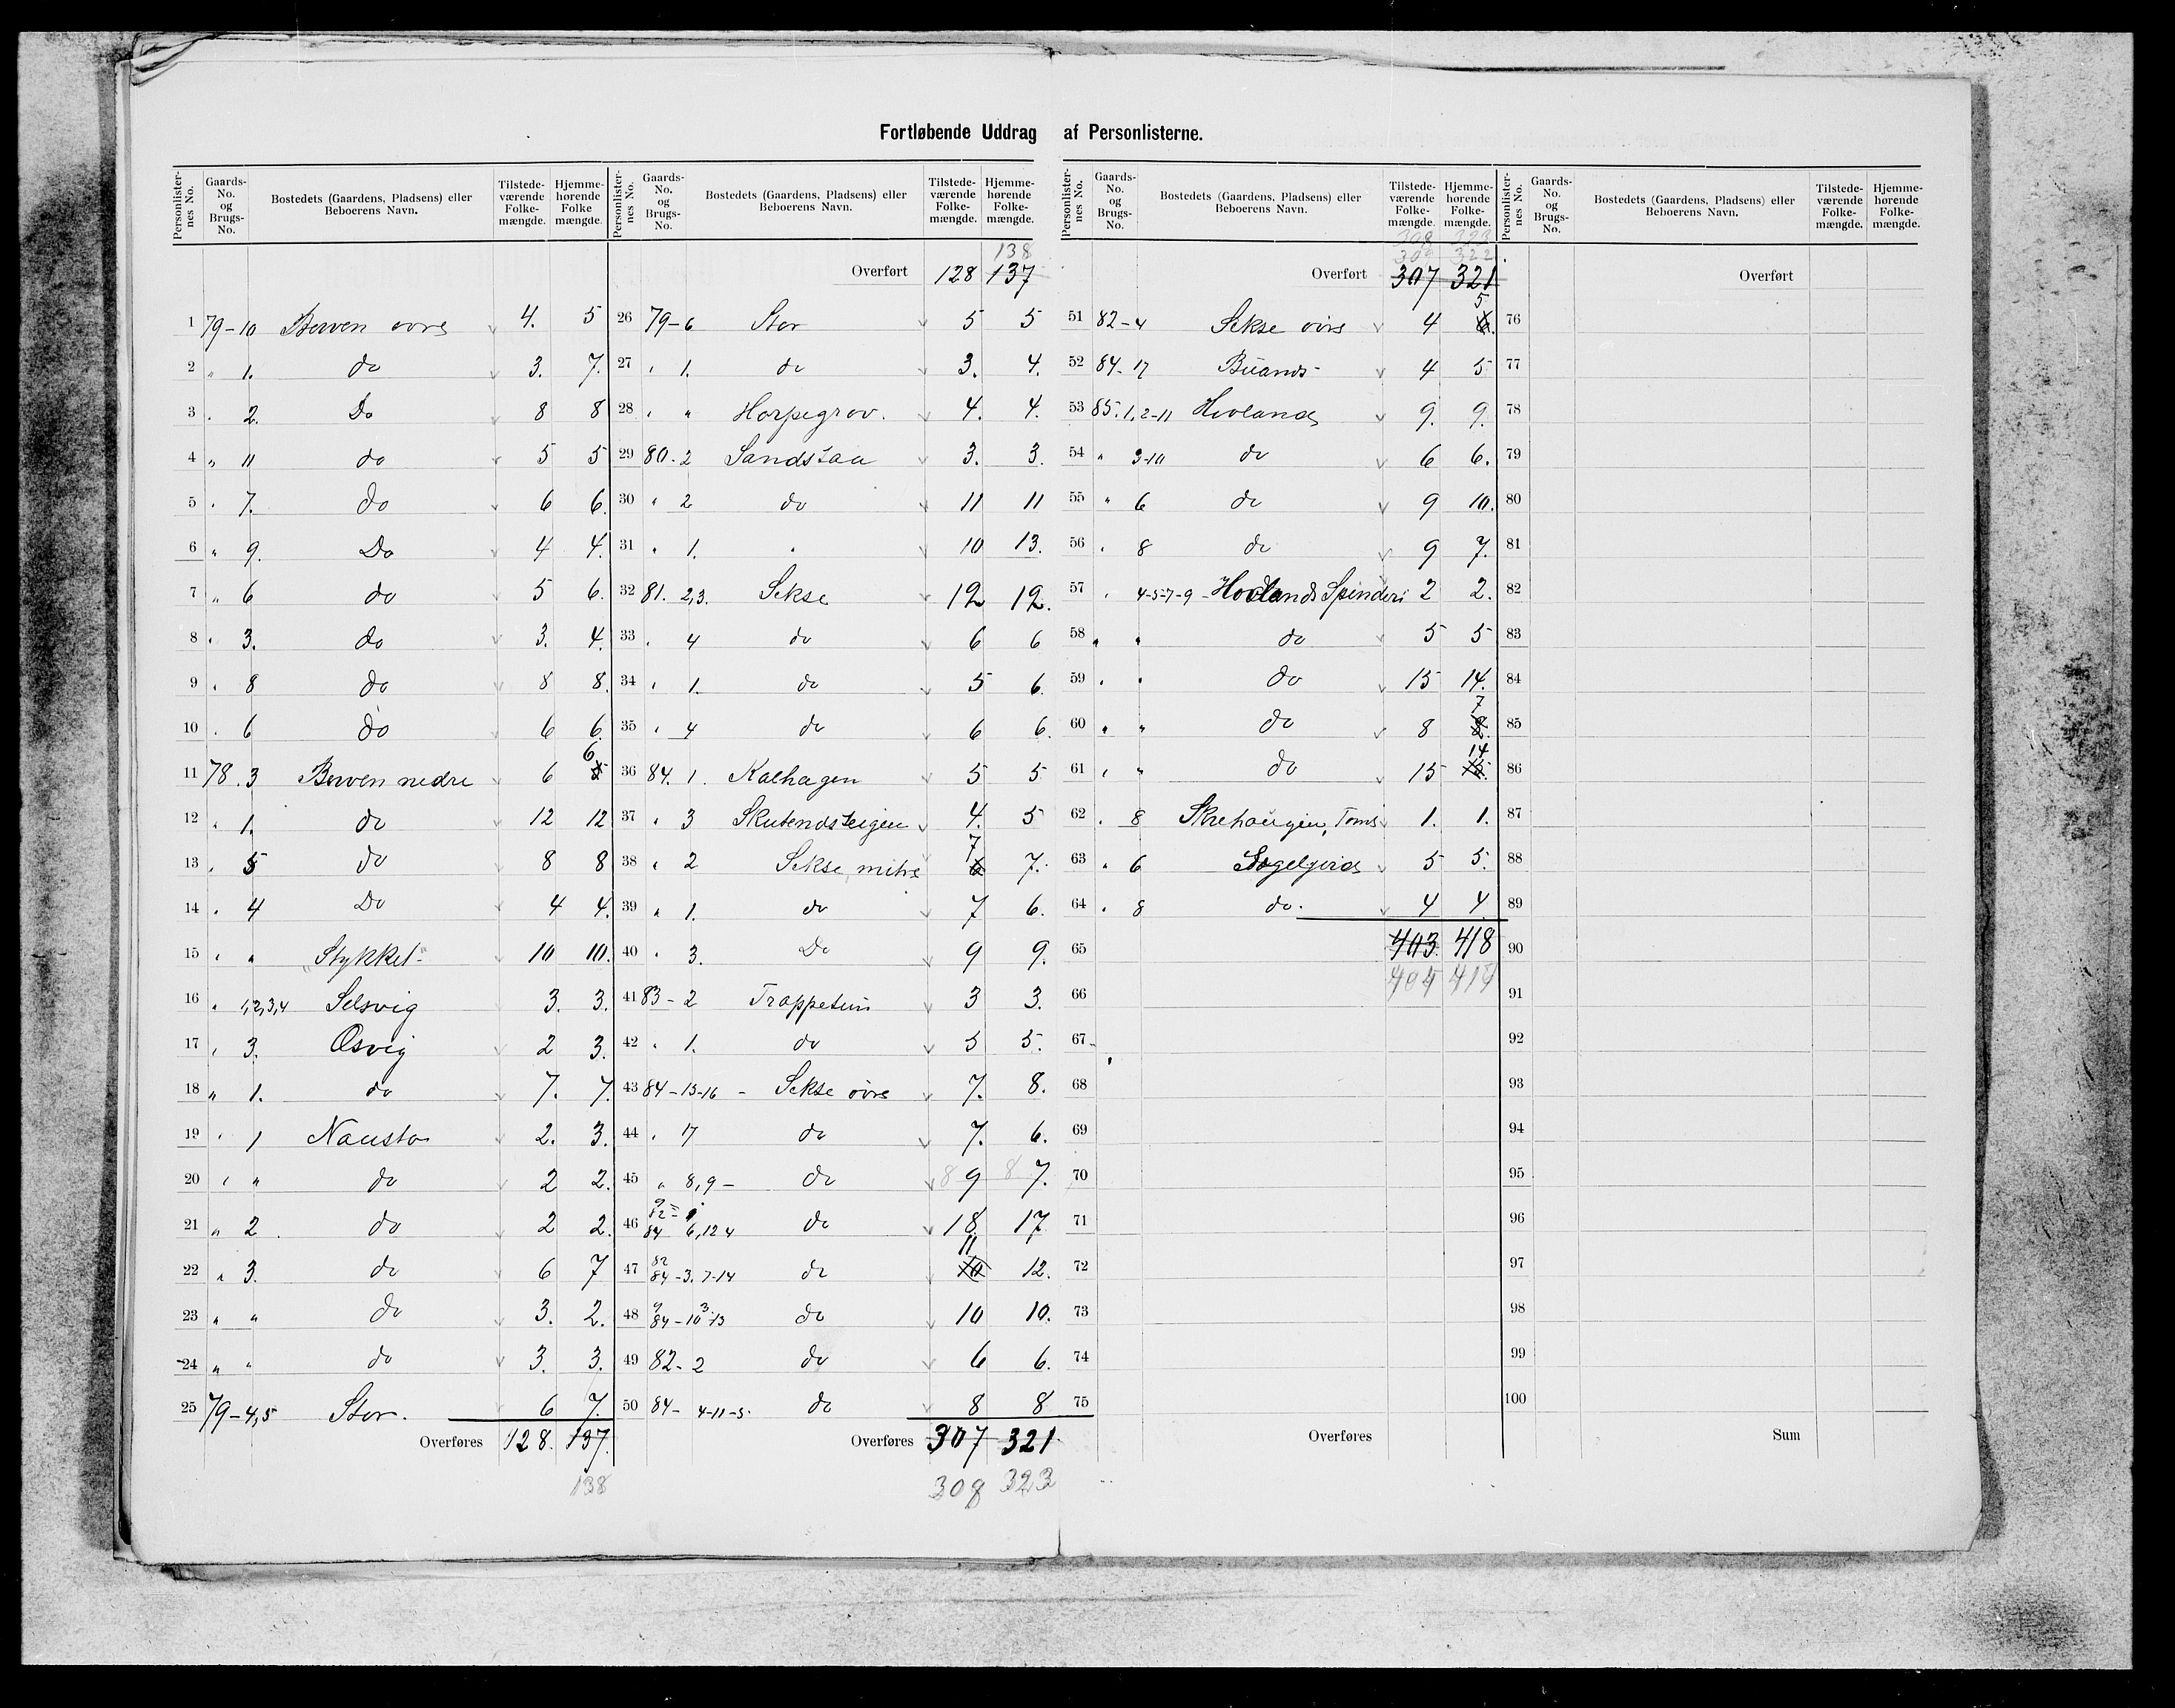 Fortløbende Uddrag af Personlisterne.
Personlister-nes No. Gaards-No. og Brugs-No. Bostedets (Gaardens, Pladsens) eller Beboerens Navn. Tilstede-værende Folke-mængde. Hjemme-hørende Folke mængde.
1 79-10 Berven øvre 4. 5
2 „ 1. do 3. 7.
3 „ 2. Do 8 8
4 „ 11 do 5 5
5 „ 7. do 6 6.
6 „ 9. Do 4 4.
7 „ 6 do 5 6.
8 „ 3. do 3. 4.
9 „ 8 do 8 8.
10 „ 6 do 6 6.
11 78. 3 Berven nedre 6 5 6
12 „ 1. do 12 12
13 „ 5 do 8 8
14 „ 4 Do 4 4.
15 „ „ „Stykket" 10 10.
16 „ 1,2,3,4 Selsvig 3. 3.
17 „ 3. Osvig 2 3.
18 „ 1. do 7. 7.
19 „ 1 Nausta 2. 3.
20 „ „ do 2 2.
21 „ 2 do 2 2.
22 „ 3. do 6 7
23 „ „ do 3. 2.
24 „ „ do 3. 3.
25 79-4,5 Stor. 6 7.
Overføres 128. 137.
138
Personlister-nes No. Gaards-No. og Brugs-No. Bostedets (Gaardens, Pladsens) eller Beboerens Navn. Tilstede-værende Folke-mængde. Hjemme-hørende Folke-mængde.
138
Overført 128 137
26 79-6 Stor 5 5
27 „ 1. do 3. 4.
28 „ „ Horpegrov. 4. 4.
29 80. 2 Sandstaa 3. 3.
30 „ 2 do 11 11
31 „ 1. „ 10 13.
32 81. 2,3. Sekse 12 12.
33 „ 4 do 6 6
34 „ 1. do 5 6.
35 „ 4 do 6 6.
36 84. 1. Kalhagen 5 5
37 „ 3 Skutendsteigen 4. 5
38 „ 2 Sekse, mitre 6 7 7.
39 „ 1. do 7 6.
40 „ 3. Do 9 9.
41 83-2 Trappetun 3 3.
42 „ 1. do 5 5.
43 84-15-16 - Sekse øvre 7. 8.
44 „ 17 do 7. 6.
45 „ 8,9- do 8 9 8 7.
46 84 6,12 do 18 17
47 82 84-3. 7-14 do 10 11 12.
48 84-10 13 do 10 10.
49 82-2 do 6 6.
50 84- 4-11-5. do 8 8
Overføres 307 321
308 323
Personlister-nes No. Gaards-No. og Brugs-No. Bostedets (Gaardens, Pladsens) eller Beboerens Navn. Tilstede-værende Folke-mængde. Hjemme-hørende Folke-mængde.
308 323
Overført 307 321
51 82-4 Sekse øvre 4 6. 5
52 84-17 Buland 4 5
53 85. 1,2-11 Hovland 9. 9.
54 „ 3-10 do 6 6.
55 „ 6 do 9 10.
56 „ 8 do 9 7.
57 „ 4-5-7-9- Hovlands Spinderi 2 2.
58 „ „ do 5 5
59 „ „ do 15 14.
60 „ „ do 8 8. 7
61 „ „ do 15 15. 14
62 „ 8 Skrehaugen, Toms 1. 1.
63 „ 6 5 5.
64 „ 8 do. 4 4
65 403 418
404 419
66
67
68
69
70
71
72
73
74
75
Overføres
Personlister-nes No. Gaards-No. og Brugs-No. Bostedets (Gaardens, Pladsens) eller Beboerens Navn. Tilstede-værende Folke-mængde. Hjemme-hørende Folke-mængde.
Overført
76
77
78
79
80
81
82
83
84
85
86
87
88
89
90
91
92
93
94
95
96
97
98
99
100
Sum